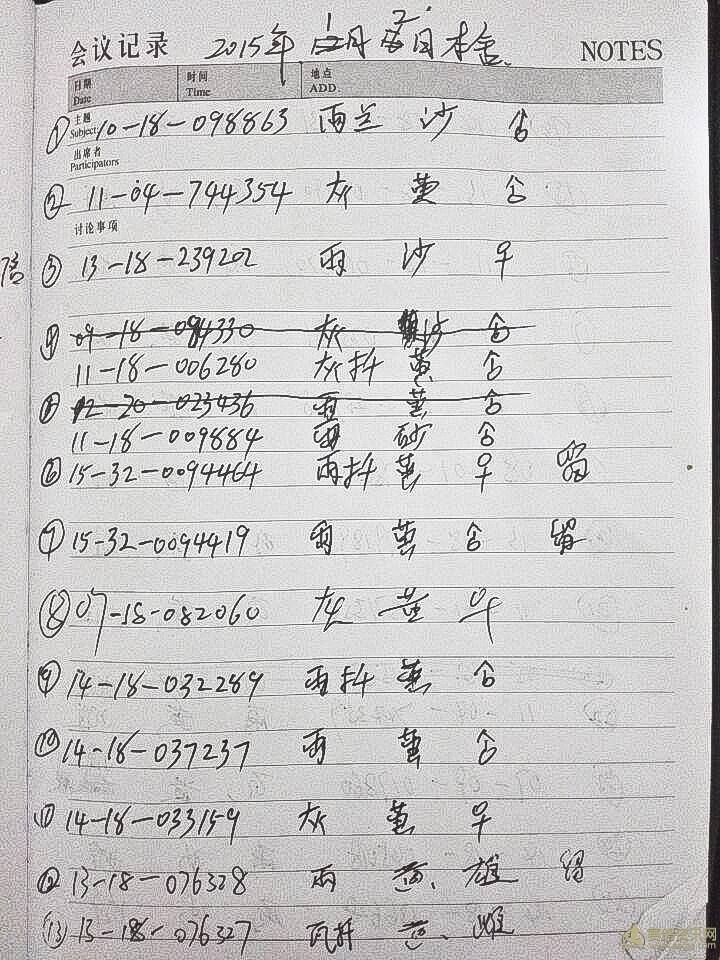 会议记录 2015年 月 日 本舍 NOTES
日期 Date 时间 Time 地点 ADD.
主题 Subject
① 10-18-098863 雨兰 沙 合
出席者 Participators
② 11-04-744354 灰 黄 合
讨论事项
③ 13-18-239202 雨 沙 早
④ 09-18-094330 灰 沙 合
11-18-006280 灰抖 黄 合
⑤ 12-20-023436 雨 黄 合
11-18-009884 雨 砂 合
⑥ 15-32-0094464 雨抖 黄 早 留
⑦ 15-32-0094419 雨 黄 合 留
⑧ 07-18-082060 灰 黄 早
⑨ 14-18-032289 雨抖 黄 合
⑩ 14-18-037237 雨 黄 合
⑪ 14-18-033159 灰 黄 早
⑫ 13-18-076328 雨 黄、雄 留
(13) 13-18-076327 瓦抖 黄、雌